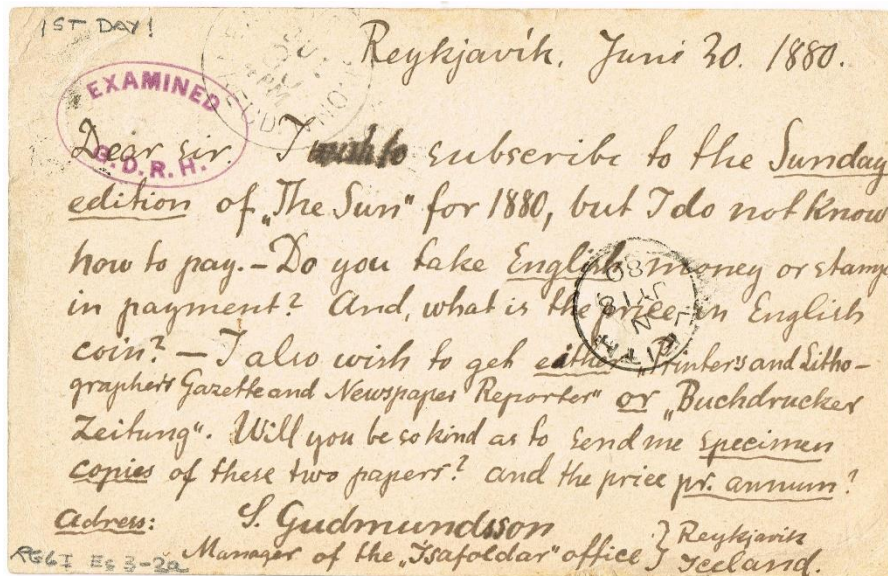 1ST DAY!
Reykjavik. Juni 30. 1880.
EXAMINED
G.D.R.H.
Dear sir. I wish to subscribe to the Sunday
edition of „The Sun“ for 1880, but I do not know
how to pay. – Do you take English money or stamps
in payment? And, what is the price in English
coin? – I also wish to get either „Printers and Litho-
graphers Gazette and Newspaper Reporter“ or „Buchdrucker
Zeitung“. Will you be so kind as to send me specimen
copies of these two papers? and the price pr. annum?
Adress: S. Gudmundsson
Manager of the „Isafoldar“ office } Reykjavik
Iceland.
LEITH
JY 18
80